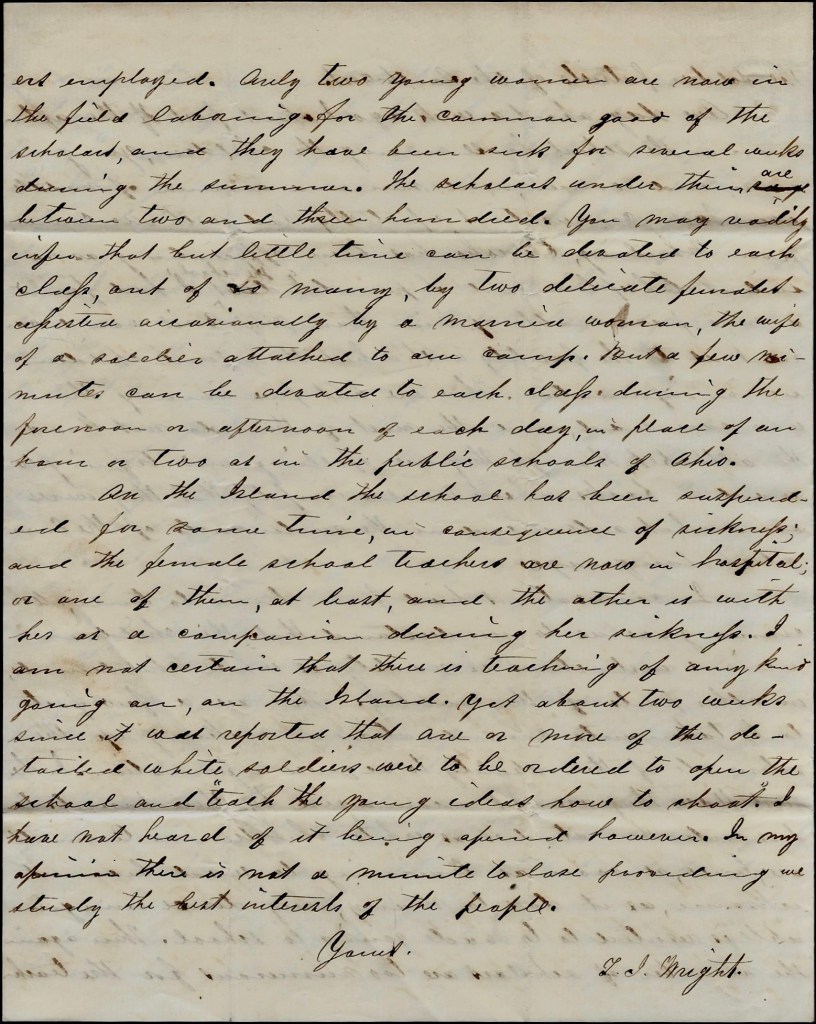 ers employed. Only two young women are now in
the field laboring for the common good of the
scholars, and they have been sick for several weeks
during the summer. The scholars under them are
between two and three hundred. You may readily
infer that but little time can be devoted to each
class, out of so many, by two delicate females
assisted occasionally by a married woman, the wife
of a soldier attached to our camp. But a few mi-
nutes can be devoted to each class during the
forenoon or afternoon of each day, in place of an
hour or two as in the public schools of Ohio.
On the Island the school has been suspend-
ed for some time, in consequence of sickness;
and the female school teachers are now in hospital;
or one of them, at least, and the other is with
her as a companion during her sickness. I
am not certain that there is teaching of any kind
going on, on the Island. Yet about two weeks
since it was reported that one or more of the de-
tailed white soldiers were to be ordered to open the
school and "teach the young ideas how to shoot". I
have not heard of it being opened however. In my
opinion there is not a minute to lose providing we
study the best interests of the people.
Yours.
T. J. Wright.